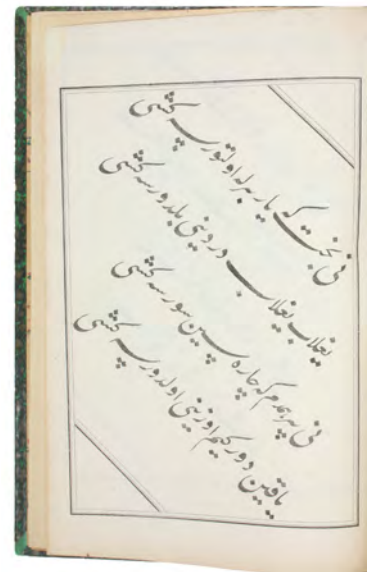 نی بخت که یار برله اولتورسه کشی
یغلاب یغلاب دردینی بلدورسه کشی
نی بر همدم که چاره سین سورسه کشی
یاقین دور کیم اوزینی اولدورسه کشی